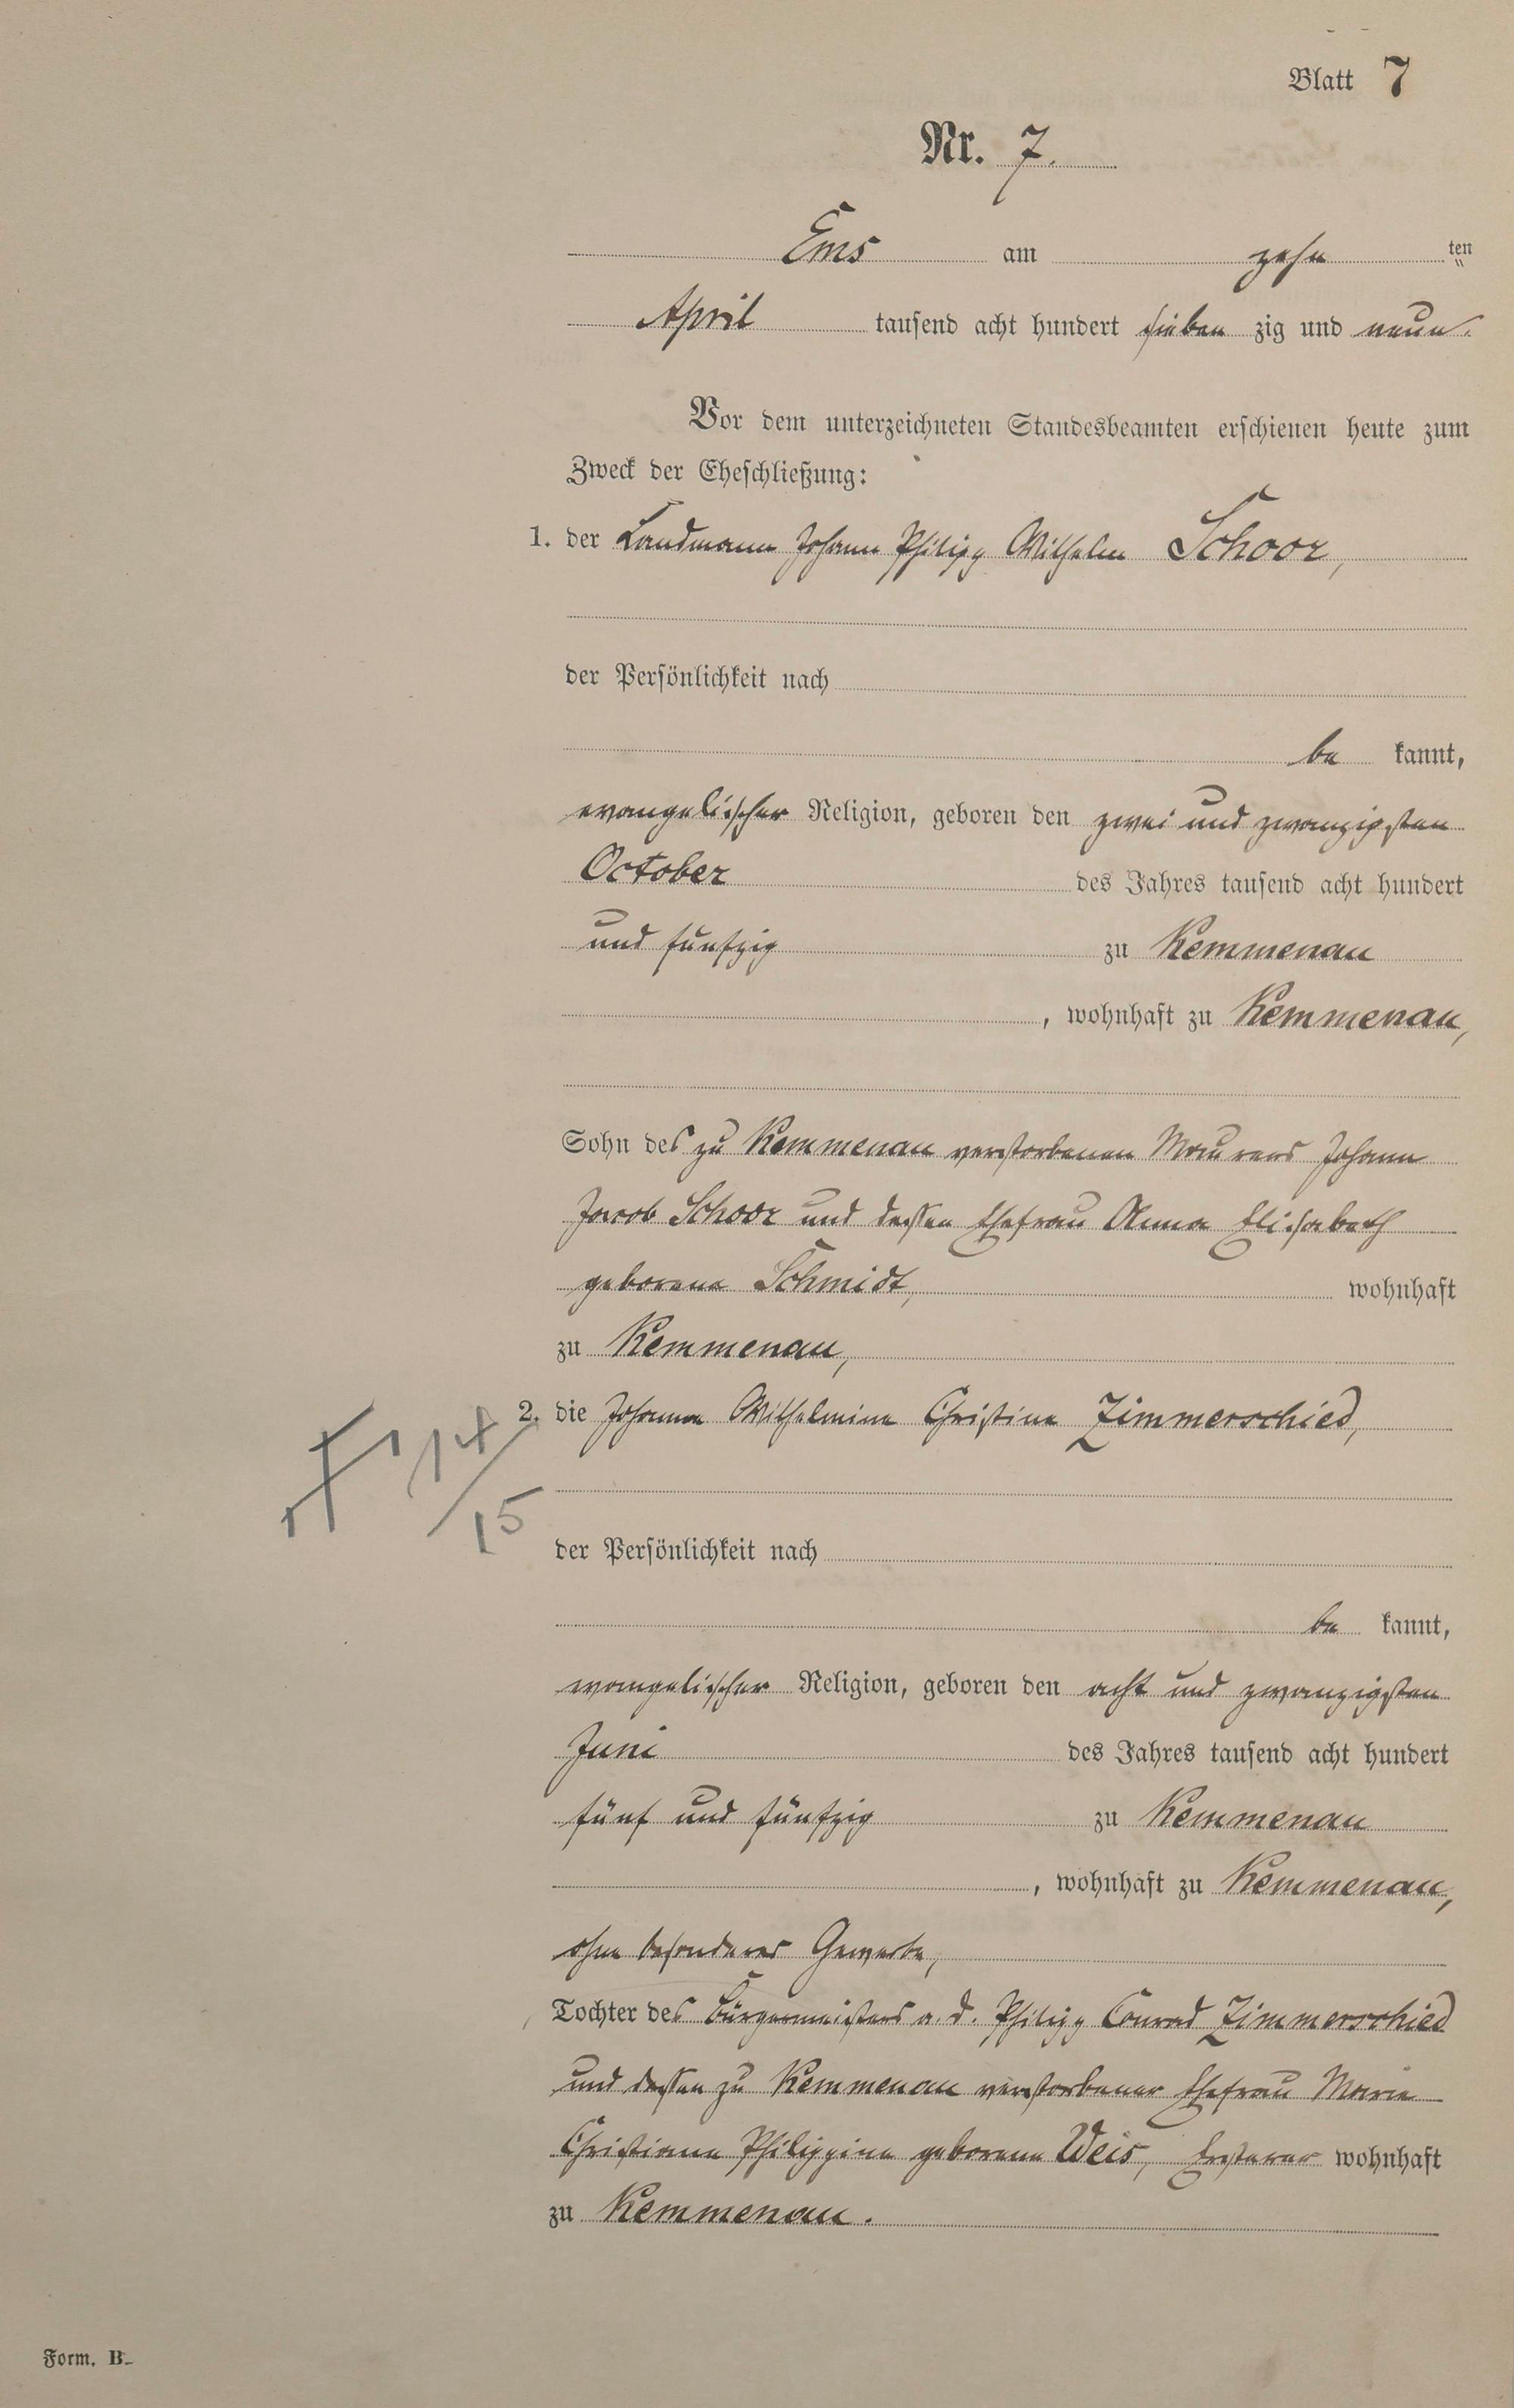 Blatt 7
Nr. 7.
Ems am zehn ten
April tausend acht hundert sieben zig und neun.
Vor dem unterzeichneten Standesbeamten erschienen heute zum
Zweck der Eheschließung:
1. der Landmann Johann Philipp Wilhelm Schoor,
der Persönlichkeit nach
be kannt,
evangelischer Religion, geboren den zwei und zwanzigsten
October des Jahres tausend acht hundert
und fünfzig zu Kemmenau
, wohnhaft zu Kemmenau,
Sohn des zu Kemmenau verstorbenen Maurers Johann
Jacob Schoor und dessen Ehefrau Anna Elisabeth
geborene Schmidt, wohnhaft
zu Kemmenau,
2. die Johanna Wilhelmine Christine Zimmerschied,
14/15
der Persönlichkeit nach
be kannt,
evangelischer Religion, geboren den acht und zwanzigsten
Juni des Jahres tausend acht hundert
fünf und fünfzig zu Kemmenau
, wohnhaft zu Kemmenau,
ohne besonderes Gewerbe,
Tochter des Bürgermeisters a. d. Philipp Conrad Zimmerschied
und dessen zu Kemmenau verstorbener Ehefrau Marie
Christiane Philippine geborene Weis, Ersterer wohnhaft
zu Kemmenau.
Form. B.